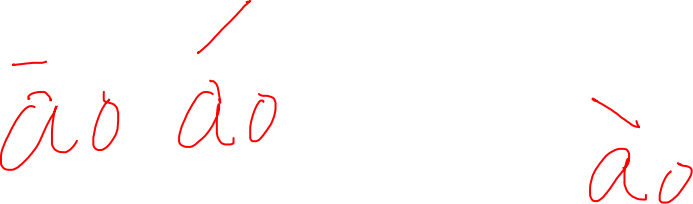 āo áo ào